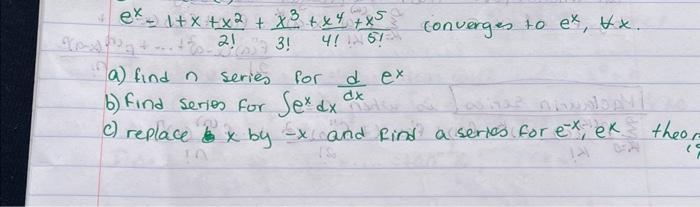 e^x = 1+x+x²/2! + x³/3! + x⁴/4! + x⁵/5! converges to e^x, ∀x.
a) find n series for d/dx e^x
b) find series for ∫e^x dx
c) replace x by -x and find a series for e^-x, e^x theor